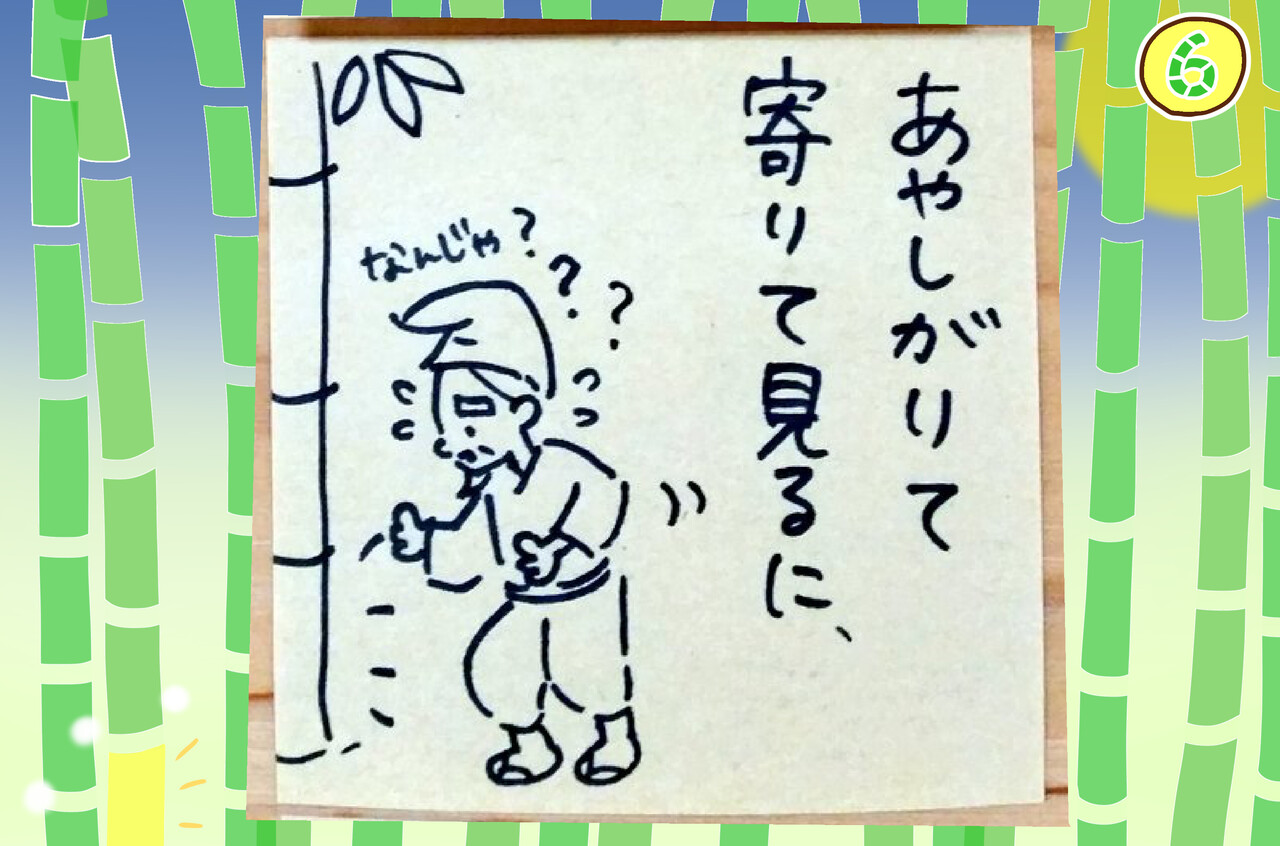 6
あやしがりて
寄りて見るに、
なんじゃ?
? ?